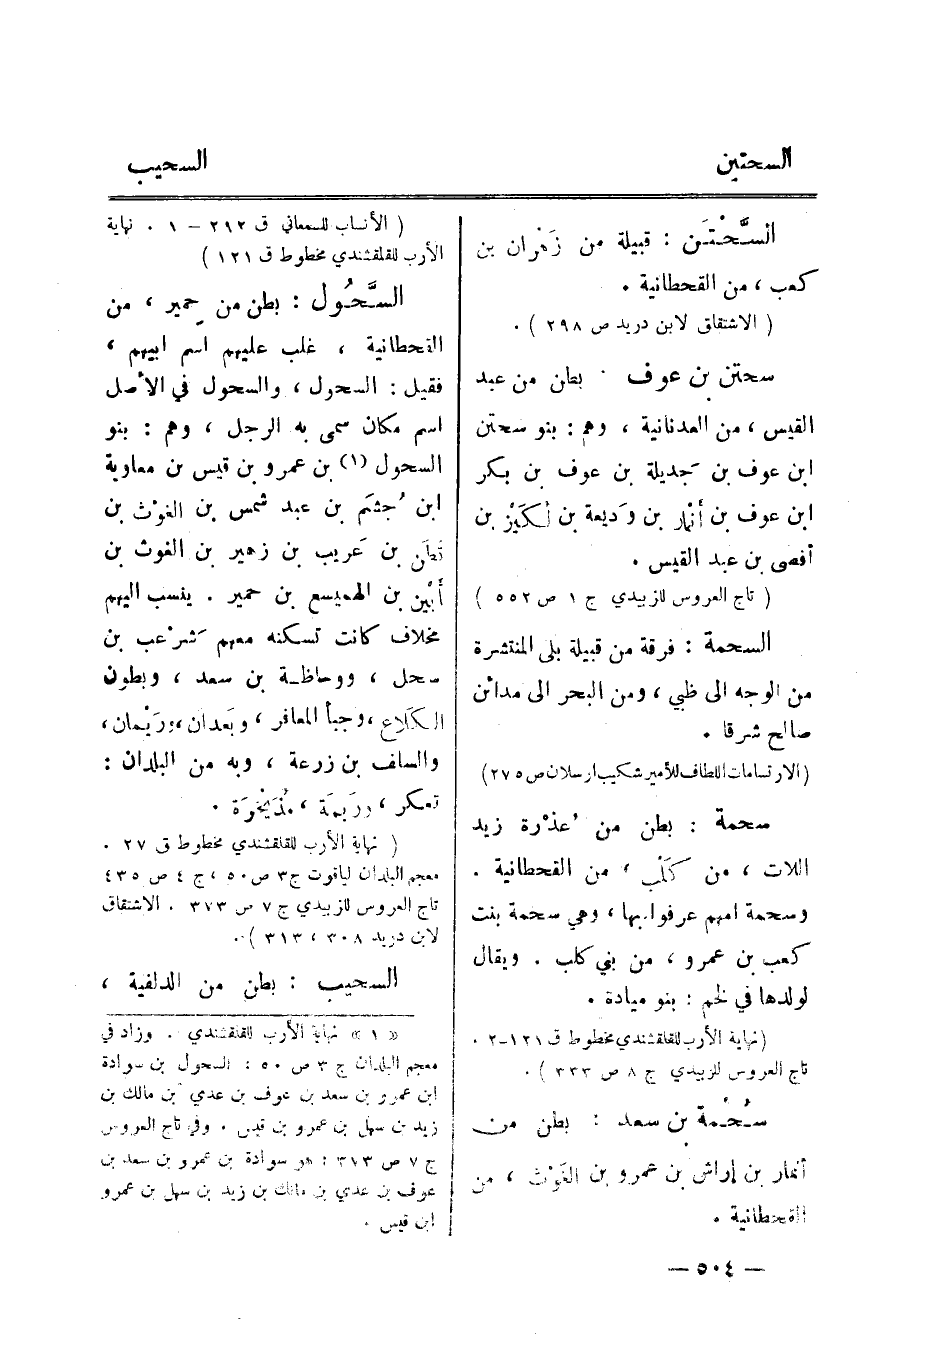 السحتين
السحيب
السَّحْتَن : قبيلة من زَهْران بن
كعب ، من القحطانية .
( الاشتقاق لابن دريد ص ٢٩٨ ) .
سحتن بن عوف : بطن من عبد
القيس ، من العدنانية ، وهم : بنو سحتن
ابن عوف بن جَديلة بن عوف بن بكر
ابن عوف بن أنْمار بن وَديعة بن لُكَيْز بن
أفصى بن عبد القيس .
( تاج العروس للزبيدي ج ١ ص ٥٥٢ )
السحمة : فرقة من قبيلة بلى المنتشرة
من الوجه الى ظبي ، ومن البحر الى مدائن
صالح شرقا .
(الارتسامات اللطاف للأمير شكيب ارسلان ص ٢٧٥)
سحمة : بطن من عُذْرة زيد
اللات ، من كَلْب ، من القحطانية .
وسحمة امهم عرفوا بها ، وهي سحمة بنت
كعب بن عمرو ، من بني كلب . ويقال
لولدها في لخم : بنو ميادة .
(نهاية الأرب للقلقشندي مخطوط ق ١٢١-٢ .
تاج العروس للزبيدي ج ٨ ص ٣٣٣ ) .
سُحْمة بن سعد : بطن من
أنمار بن إراش بن عمرو بن الغَوْث ، من
القحطانية .
( الأنساب للسمعاني ق ٢٩٢ – ١ . نهاية
الأرب للقلقشندي مخطوط ق ١٢١ )
السَّحُول : بطن من حِمير ، من
القحطانية ، غلب عليهم اسم ابيهم ،
فقيل : السحول ، والسحول في الأصل
اسم مكان سمى به الرجل ، وهم : بنو
السحول (١) بن عمرو بن قيس بن معاوية
ابن جُشَم بن عبد شمس بن الغوْث بن
قَطَن بن عَريب بن زهير بن الغوث بن
أَبْيَن بن الهميسع بن حمير . ينسب اليهم
مخلاف كانت تسكنه معهم شَرْعب بن
سحل ، ووحاظة بن سعد ، وبطون
الكَلاع ، وجبأ المعافر ، وبَعدان ، ورَيْمان ،
والسالف بن زرعة ، وبه من البلدان :
تعكر ، ورَيمَة ، مُذَيْخِرَة .
( نهاية الأرب للقلقشندي مخطوط ق ٢٧ .
معجم البلدان لياقوت ج٣ ص ٥٠ ، ج ٤ ص ٤٣٥
تاج العروس للزبيدي ج ٧ ص ٣٧٣ . الاشتقاق
لابن دريد ٣٠٨ ، ٣١٣ ) .
السحيب : بطن من الدلفية ،
« ١ » نهاية الأرب للقلقشندي . وزاد في
معجم البلدان ج ٣ ص ٥٠ : السحول بن سوادة
ابن عمرو بن سعد بن عوف بن عدي بن مالك بن
زيد بن سهل بن عمرو بن قيس . وفي تاج العروس
ج ٧ ص ٣١٣ : هو سوادة بن عمرو بن سعد بن
عوف بن عدي بن مالك بن زيد بن سهل بن عمرو
ابن قيس .
— ٥٠٤ —